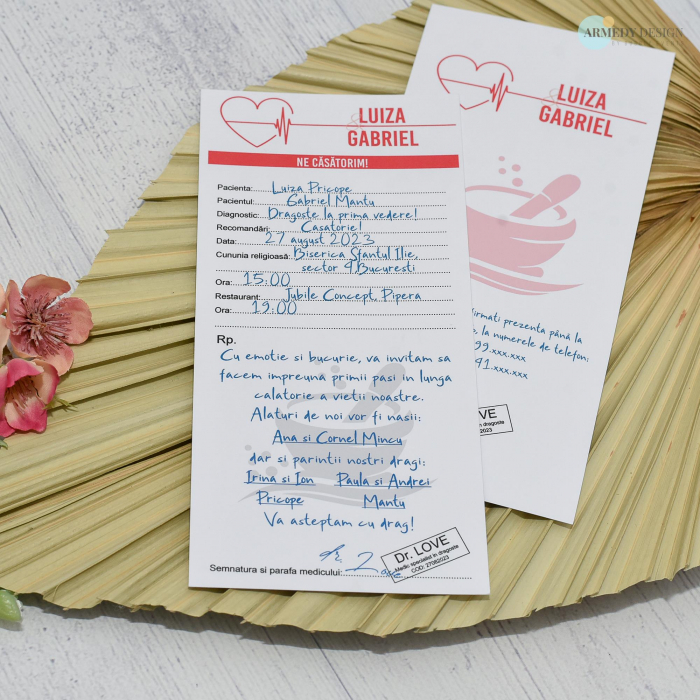 ARMEDY DESIGN
LUIZA
GABRIEL
NE CĂSĂTORIM!
Pacienta: Luiza Pricope
Pacientul: Gabriel Mantu
Diagnostic: Dragoste la prima vedere!
Recomandări: Casatorie!
Data: 27 august 2023
Cununia religioasă: Biserica Sfantul Ilie,
sector 9, Bucuresti
Ora: 15:00
Restaurant: Jubile Concept, Pipera
Ora: 19:00
Rp.
Cu emotie si bucurie, va invitam sa
facem impreuna primii pasi in lunga
calatorie a vietii noastre.
Alaturi de noi vor fi nasii:
Ana si Cornel Mincu
dar si parintii nostri dragi:
Irina si Ion Paula si Andrei
Pricope Mantu
Va asteptam cu drag!
Semnatura si parafa medicului:
Dr. LOVE
Medic specialist in dragoste
COD: 27082023
LUIZA
GABRIEL
rmati prezenta până la
, la numerele de telefon:
99.xxx.xxx
91.xxx.xxx
LOVE
in dragoste
2023